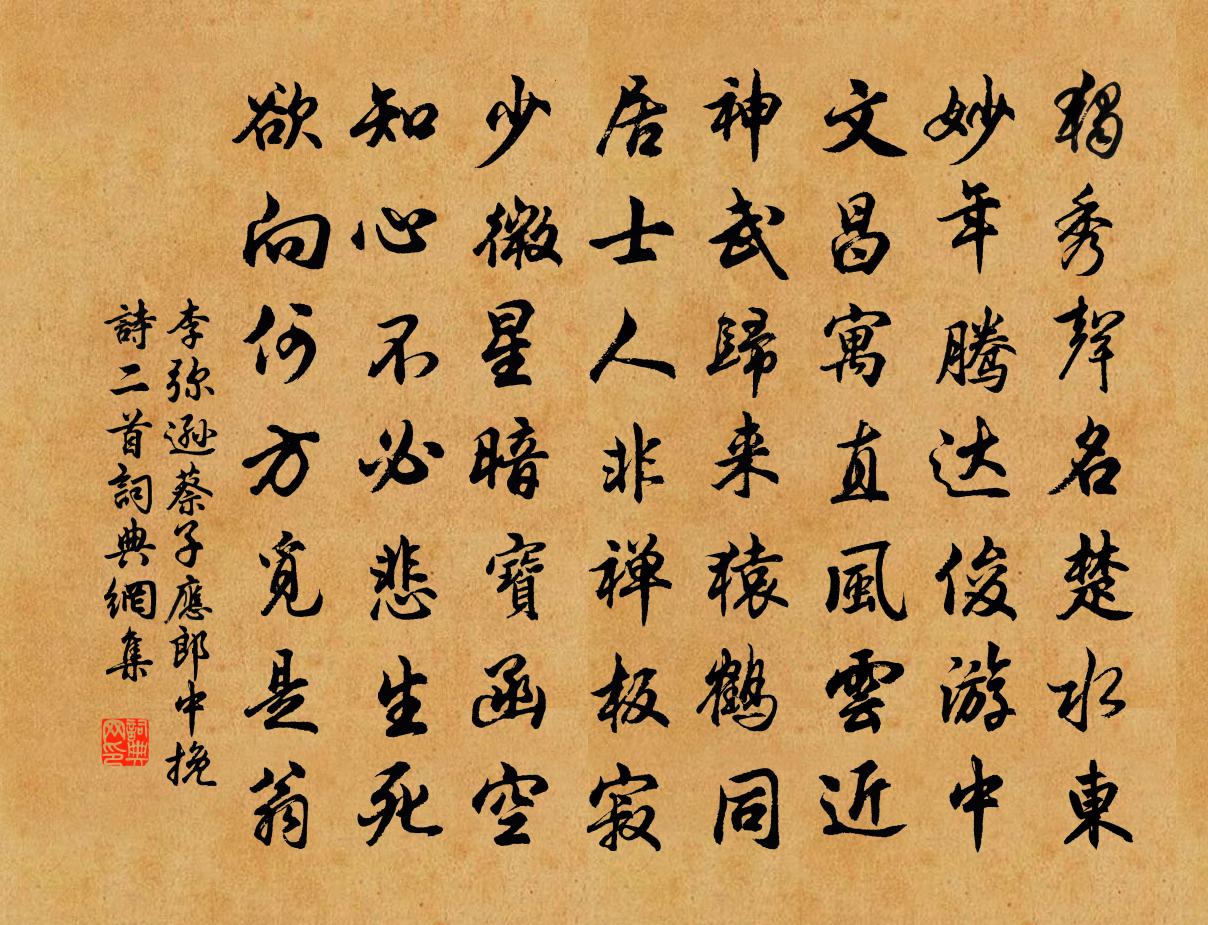 獨秀聲名楚水東
妙年騰达俊游中
文昌寓直風雲近
神武歸来猿鶴同
居士人非禅板寂
少微星暗寶函空
知心不必悲生死
欲向何方覓是翁
李弥遜蔡子應郎中挽
詩二首詞典網集
詞典
网印